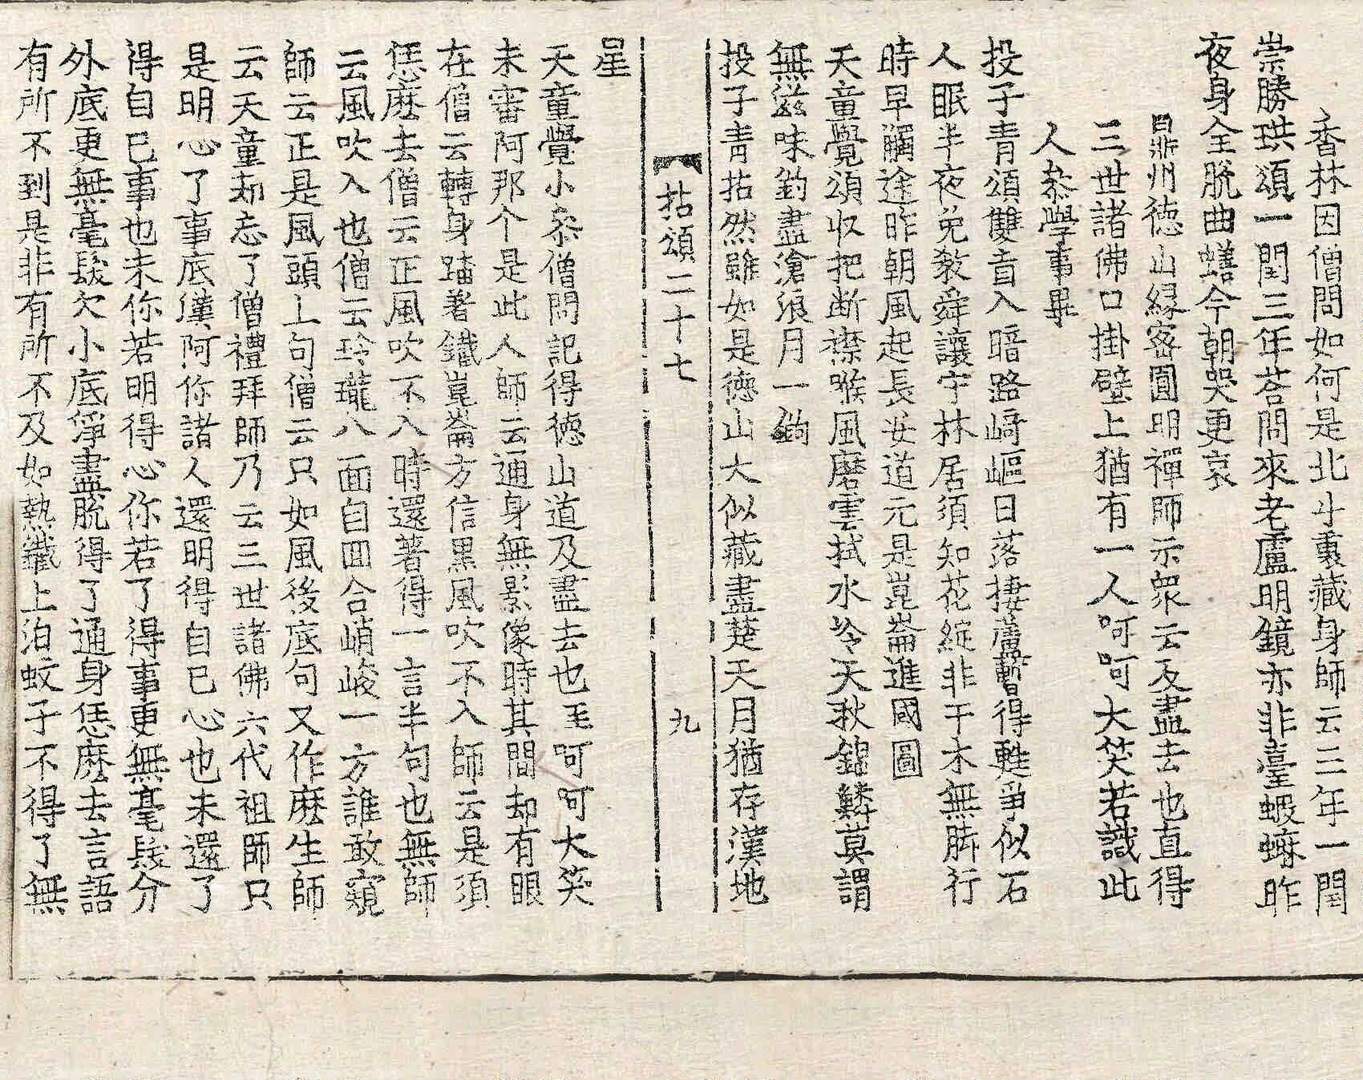 香林因僧問如何是北斗裏藏身師云三年一閏
崇勝珙頌一閏三年荅問來老盧明鏡亦非臺蝦䗫昨
夜身全脫曲蟮今朝哭更哀
鼎州德山緣密圓明禪師示衆云及盡去也直得
三世諸佛口掛壁上猶有一人呵呵大笑若識此
人叅學事畢
投子青頌雙盲入暗路崎嶇日落捿蘆暫得甦爭似石
人眠半夜免敎舜讓宇林居須知花綻非干木無脚行
時早觸途昨朝風起長安道元是崑崙進國圖
天童覺頌收把断襟喉風磨雲拭水冷天秋錦鱗莫謂
無滋味釣盡滄浪月一鉤
投子青拈然雖如是德山大似藏盡楚天月猶存漢地
拈頌二十七 九
星
天童覺小叅僧問記得德山道及盡去也至呵呵大笑
未審阿那个是此人師云通身無影像時其間却有眼
在僧云轉身踏著鐵崑崙方信黑風吹不入師云是須
恁麽去僧云正風吹不入時還著得一言半句也無師
云風吹入也僧云玲瓏八面自回合峭峻一方誰敢窺
師云正是風頭上句僧云只如風後底句又作麽生師
云天童却忘了僧禮拜師乃云三世諸佛六代祖師只
是明心了事底漢阿你諸人還明得自己心也未還了
得自己事也未你若明得心你若了得事更無毫髮分
外底更無毫髮欠小底淨盡脫得了通身恁麽去言語
有所不到是非有所不及如熱鐵上泊蚊子不得了無